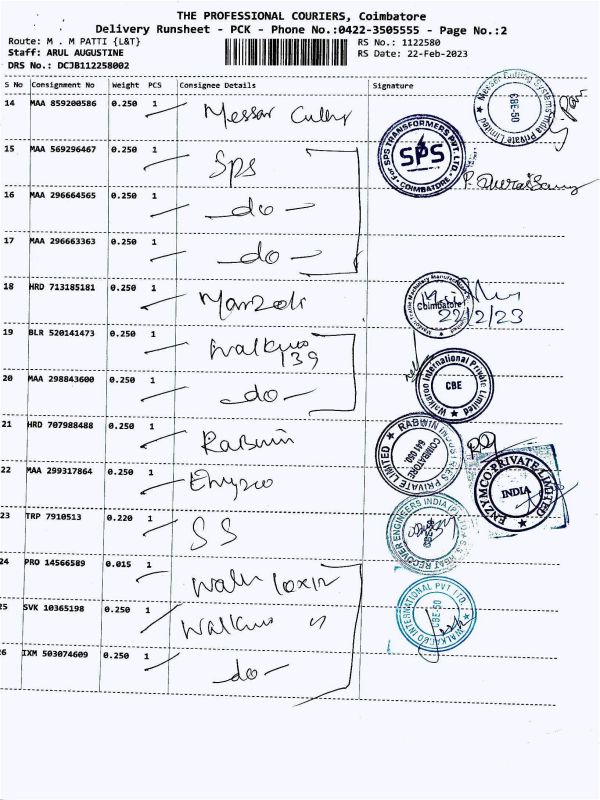 THE PROFESSIONAL COURIERS, Coimbatore
Delivery Runsheet - PCK - Phone No.:0422-3505555 - Page No.:2
Route: M . M PATTI {L&T} RS No.: 1122580
Staff: ARUL AUGUSTINE RS Date: 22-Feb-2023
DRS No.: DCJB112258002
S No Consignment No Weight PCS Consignee Details Signature
14 MAA 859200586 0.250 1
15 MAA 569296467 0.250 1 SPS
16 MAA 296664565 0.250 1 -do-
17 MAA 296663363 0.250 1 -do-
18 HRD 713185181 0.250 1
19 BLR 520141473 0.250 1
139
20 MAA 298843600 0.250 1 -do-
21 HRD 707988488 0.250 1 Rabwin
22 MAA 299317864 0.250 1
23 TRP 7910513 0.220 1 SS
24 PRO 14566589 0.015 1
25 SVK 10365198 0.250 1
26 IXM 503074609 0.250 1 -do-
Messer Cutting Systems India Private Limited
CBE-50
For SPS TRANSFORMERS PVT. LTD.
SPS
COIMBATORE
Coimbatore
22/2/23
International Private Limited
CBE
RABWIN INDUSTRIES PRIVATE LIMITED
COIMBATORE
641 050.
ENZYMCO PRIVATE LIMITED
INDIA
HEAT RECOVER ENGINEERS INDIA (P) LTD
INTERNATIONAL PVT LTD.
CBE-50